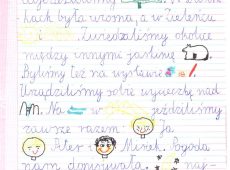 kach była wrosna, a w zieleni
Zwiedzaliśmy okolice
między innymi jaskinię
Byliśmy też na wystawie
Urządziliśmy sobie wycieczkę nad
Na jeździliśmy
zawsze razem: Ja
Piter + Misiek. Pogoda
nam dopisywała naj-